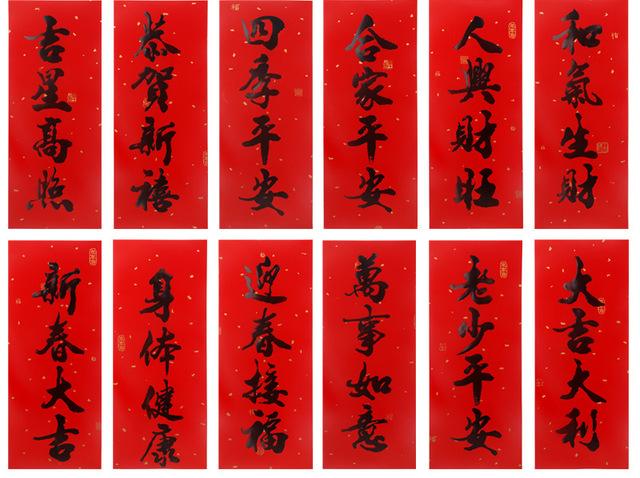 吉星高照
恭賀新禧
四季平安
合家平安
人興財旺
和氣生財
新春大吉
身体健康
迎春接福
萬事如意
老少平安
大吉大利